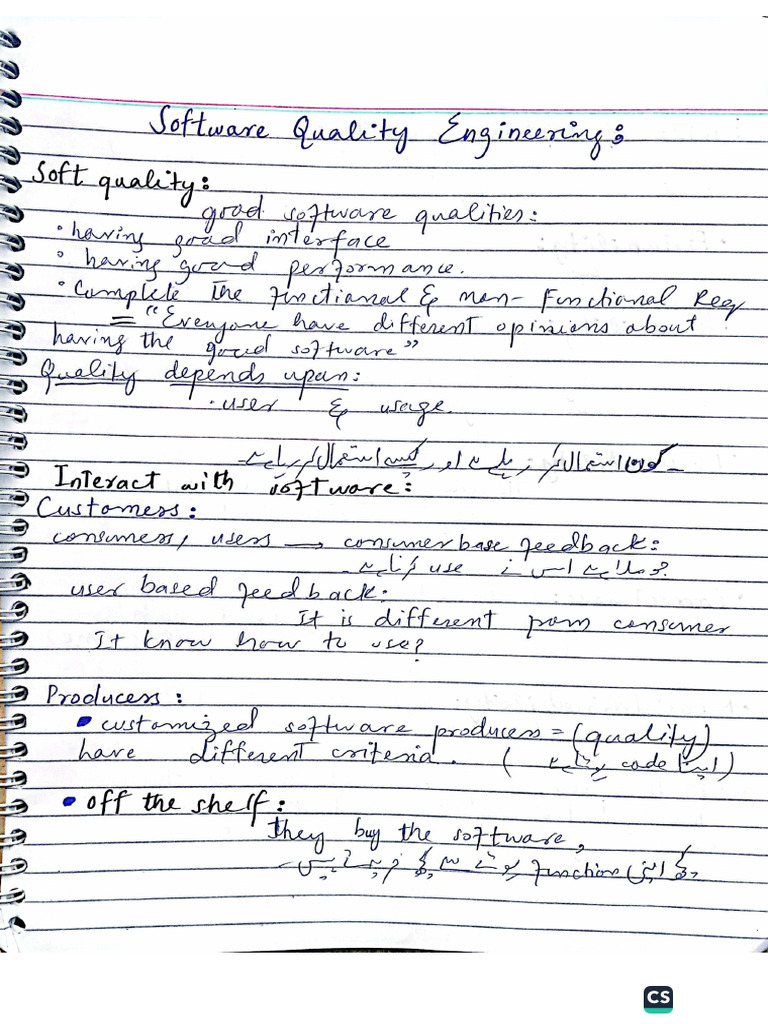 Software Quality Engineering:
Soft quality:
good software qualities:
• having good interface
• having good performance.
• Complete the functional & non-Functional Req
= "Everyone have different opinions about
having the good software"
Quality depends upon:
• user & usage.
کون استعمال کر رہا ہے اور کیسے استعمال کر رہا ہے
Interact with software:
Customers:
consumers, users → consumer base feedback:
use کرنا ہے
user based feedback:
It is different from consumer
It know how to use?
Producers:
• customized software producers = (quality)
have different criteria. ( اپنا code ہوتا ہے )
• off the shelf:
They buy the software,
function
CS